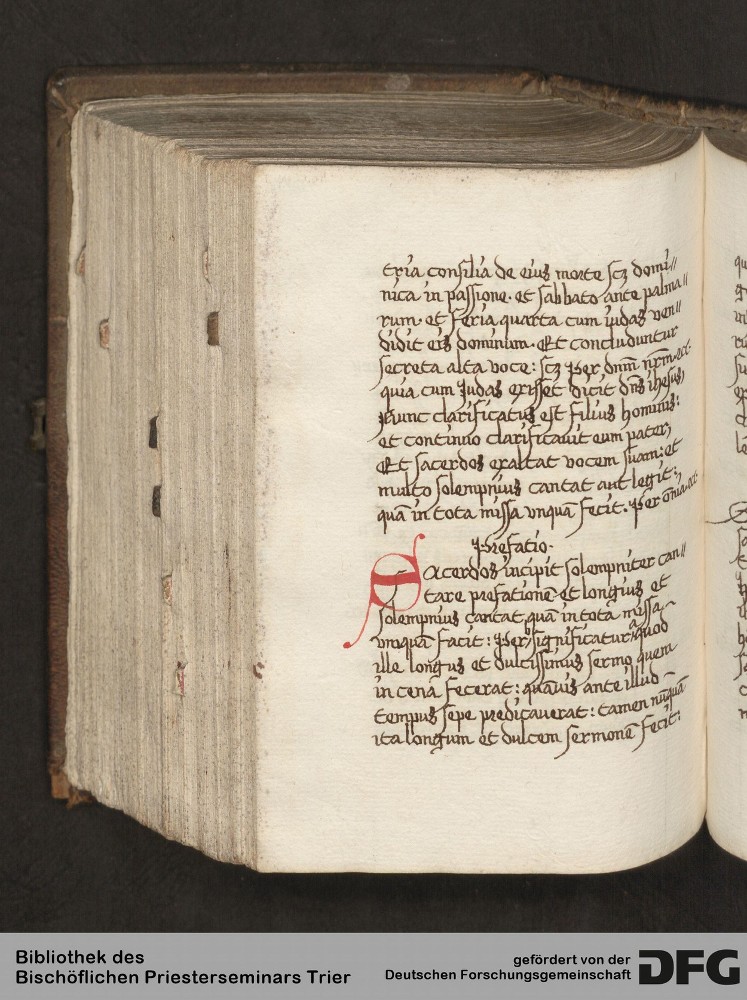 tria consilia de eius morte scz domi//
nica in passione. et sabbato ante palma//
rum. et feria quarta cum iudas ven//
didit eis dominum. Et concluduntur
secreta alta voce: scz Per dnm nrm. etc.
quia cum Judas exisset dicit dns ihesus
Nunc clarificatus est filius hominis:
et continuo clarificauit eum pater,
Et sacerdos exaltat vocem suam: et
multo solempnius cantat aut legit:
quā in tota missa vnquā fecit. Per omia etc.
Prefatio.
Sacerdos incipit solempniter can//
tare prefationē et longius et
solempnius cantat quā in tota missa
vnquā facit: Per significatur quod
ille longus et dulcissimus sermo quem
in cena fecerat: quāuis ante illud
tempus sepe predicauerat: tamen nūquā
ita longum et dulcem sermonē fecit:
Bibliothek des
Bischöflichen Priesterseminars Trier
gefördert von der
Deutschen Forschungsgemeinschaft
DFG